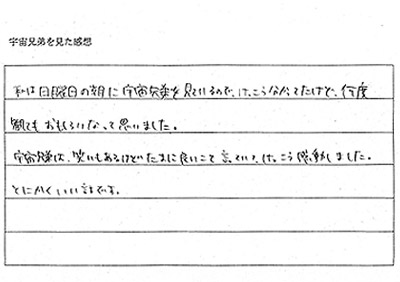 宇宙兄弟を見た感想
私は日曜日の朝に宇宙兄弟を見ているので、けっこうなんてたけど、何度
観てもおもしろいなって思いました。
宇宙兄弟は、笑いもあるけどたまに良いこと言っていて、けっこう感動しました。
とにかくいい話です。